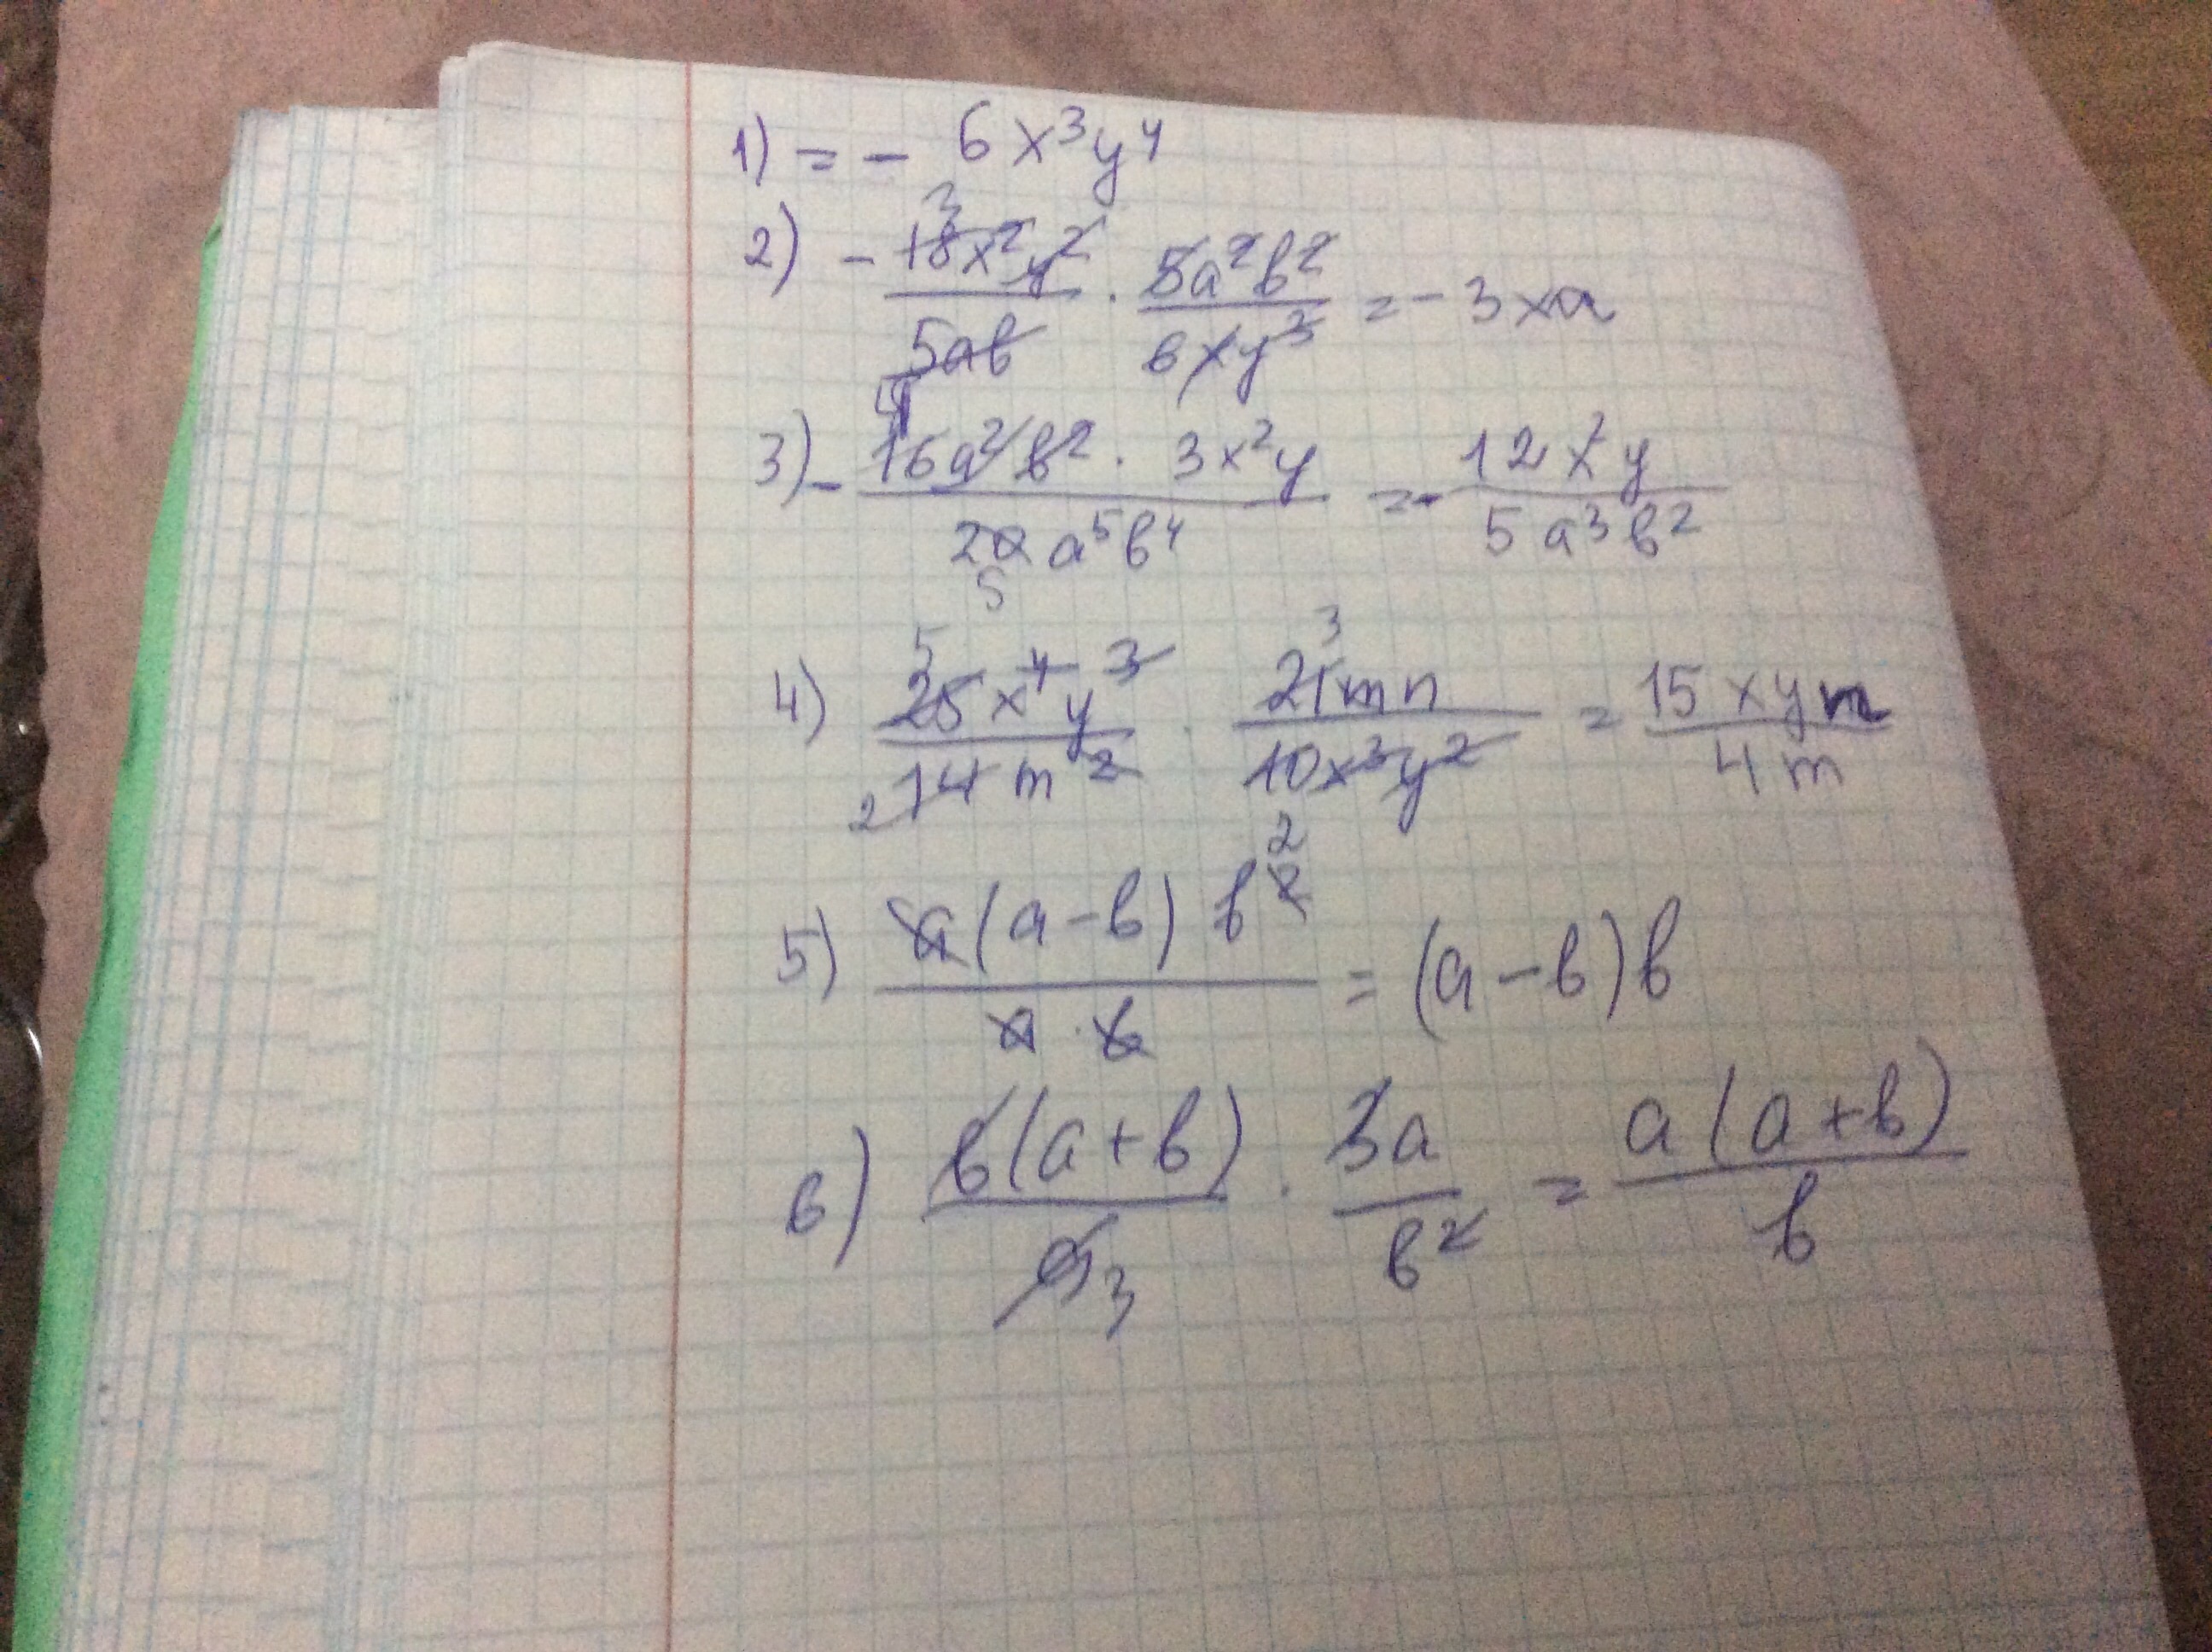 1) = - 6x³y⁴
3
2) - 18x²y²/5ab · 5a²b²/6xy³ = - 3xa
4
3) - 16a²b² · 3x²y / 20a⁵b⁴ = - 12x²y / 5a³b²
5
5 3
4) 25x⁴y³/14m² · 21mn/10x³y² = 15xyn/4m
2 2
5) a(a-b)b² / a·b = (a-b)b
6) b(a+b)/93 · 3a/b² = a(a+b)/b